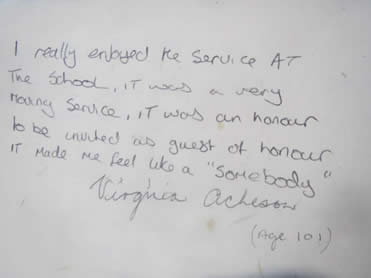 I really enjoyed the Service AT
The School, iT was a very
Moving Service, iT was an honour
to be invited as guest of honour
iT made me feel like a "Somebody"
Virginia Acheson
(Age 101)